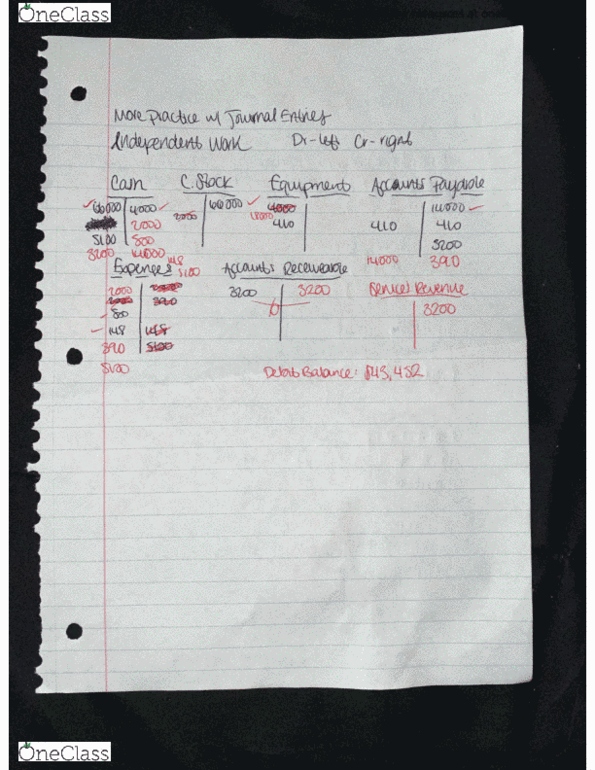 OneClass
More Practice w/ Journal Entries
Independent Work Dr-left Cr-right
Cash C. Stock Equipment Accounts Payable
66000 4000 66000 4000 14000
2000 2000 18000 410 410 410
5100 800 3200
3200 14000 148 14000 390
5100
Expenses Accounts Receiveable Service Revenue
2000 3200 3200 3200
390
800
148 148
390 5100
5100 Debit Balance: $43,452
OneClass